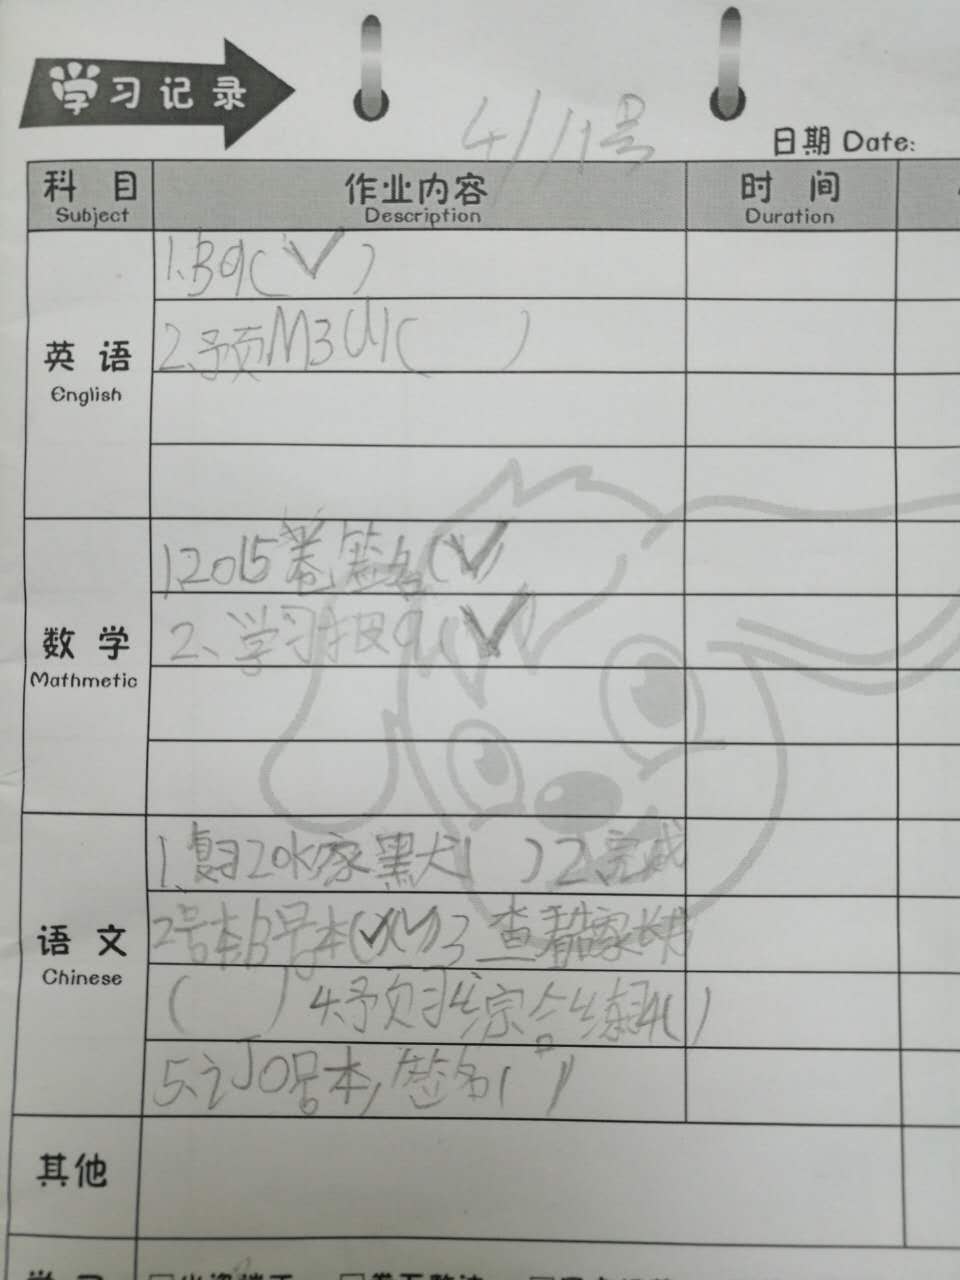 学习记录
4/11号
日期 Date:
科目 Subject
作业内容 Description
时间 Duration
英语 English
1、B9(✓)
2、予页M3U1( )
数学 Mathmetic
1、2015卷签名(✓)
2、学习报9(✓)
语文 Chinese
1、复习20水家黑犬( )2、完成
2号本B号本(✓)(✓)3查看
( )4、予页习综合练习4()
5、J0号本,签名( )
其他
学习